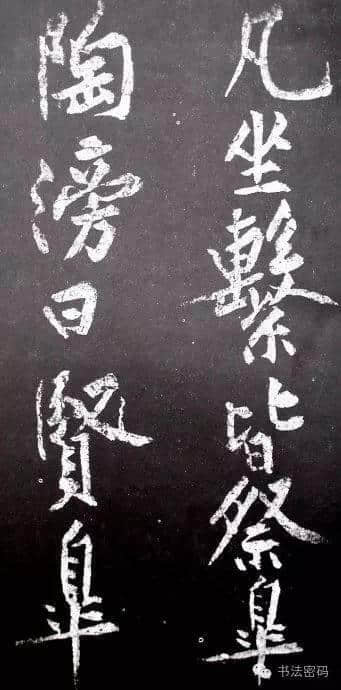 凡坐繫皆祭皐
陶滂曰賢皐
书法密码